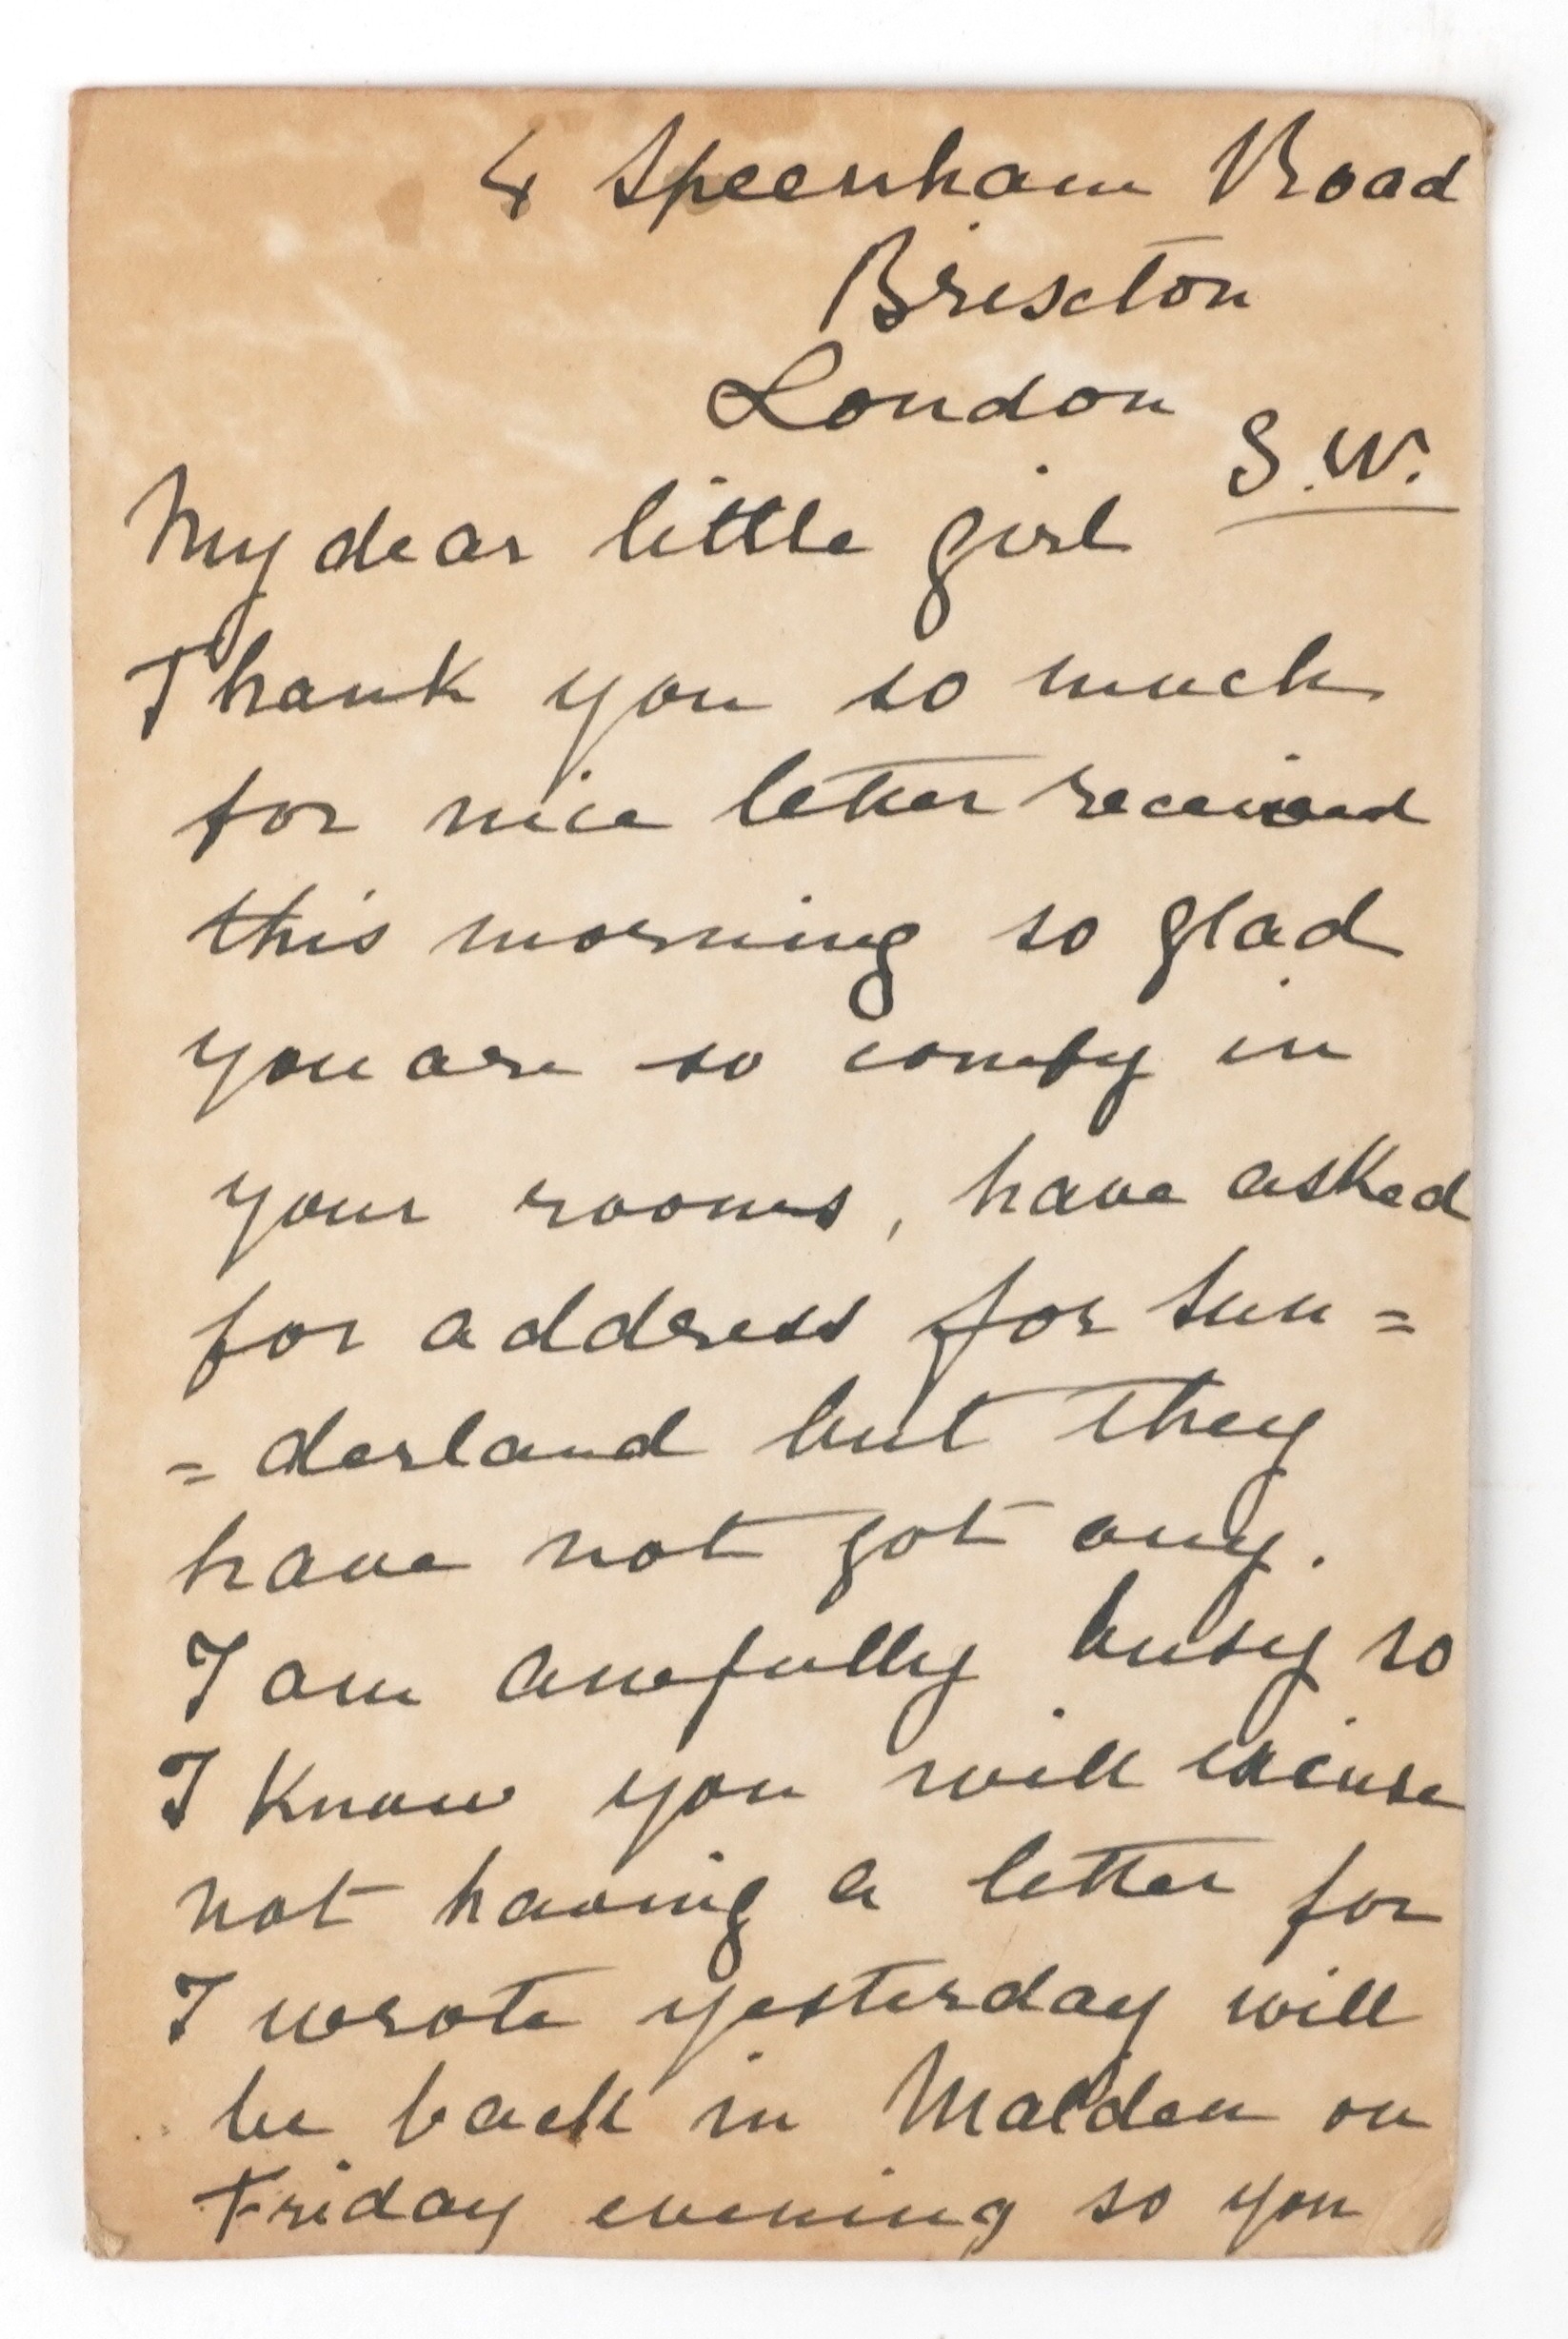 4 Speenham Road
Brixton
London
S.W.
My dear little girl
Thank you so much
for nice letter received
this morning so glad
you are so comfy in
your rooms, have asked
for address for Sun=
=derland but they
have not got any.
I am awfully busy so
I know you will excuse
not having a letter for
I wrote yesterday will
be back in Malden on
Friday evening so you